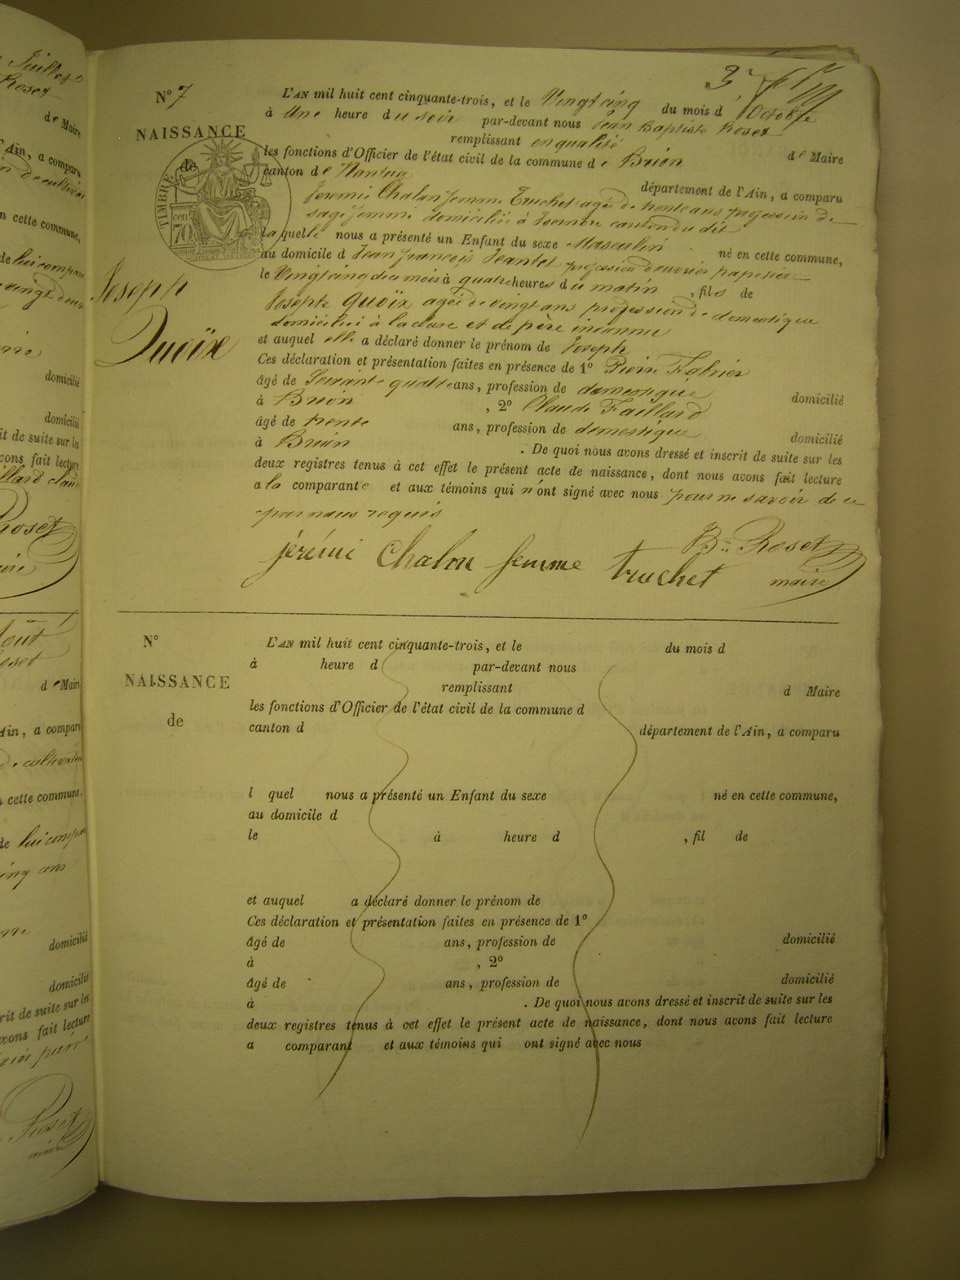 3e
N° 7
NAISSANCE
de
TIMBRE
cen
70
Joseph
Quoïx
L'AN mil huit cent cinquante-trois, et le Vingt cinq du mois d'Octobre
à Une heure du soir par-devant nous Jean Baptiste Roset
remplissant en qualité de Maire
les fonctions d'Officier de l'état civil de la commune de Brion
canton de Nantua département de l'Ain, a comparu
Jérémi Chalon femme Truchet agée de trente ans profession de
sage femme domiciliée à
laquelle nous a présenté un Enfant du sexe Masculin né en cette commune,
au domicile d Jean François Jeantet profession d'ouvrier papetier
le Vingt cinq du mois à quatre heures du matin, fils de
Joseph Quoïx agée de vingt ans profession de domestique
domiciliée à la cluse et de père inconnu
et auquel elle a déclaré donner le prénom de Joseph
Ces déclaration et présentation faites en présence de 1° Pierre
âgé de Soixante quatre ans, profession de domestique domicilié
à Brion , 2° Claude Faillard
âgé de trente ans, profession de domestique domicilié
à Brion . De quoi nous avons dressé et inscrit de suite sur les
deux registres tenus à cet effet le présent acte de naissance, dont nous avons fait lecture
a la comparante et aux témoins qui n'ont signé avec nous pour ne savoir de ce
par nous requis
jérémi Chalon femme truchet
Bte Roset
maire
N°
NAISSANCE
de
L'AN mil huit cent cinquante-trois, et le du mois d
à heure d par-devant nous
remplissant d Maire
les fonctions d'Officier de l'état civil de la commune d
canton d département de l'Ain, a comparu
l quel nous a présenté un Enfant du sexe né en cette commune,
au domicile d
le à heure d , fil de
et auquel a déclaré donner le prénom de
Ces déclaration et présentation faites en présence de 1°
âgé de ans, profession de domicilié
à , 2°
âgé de ans, profession de domicilié
à . De quoi nous avons dressé et inscrit de suite sur les
deux registres tenus à cet effet le présent acte de naissance, dont nous avons fait lecture
a comparant et aux témoins qui ont signé avec nous